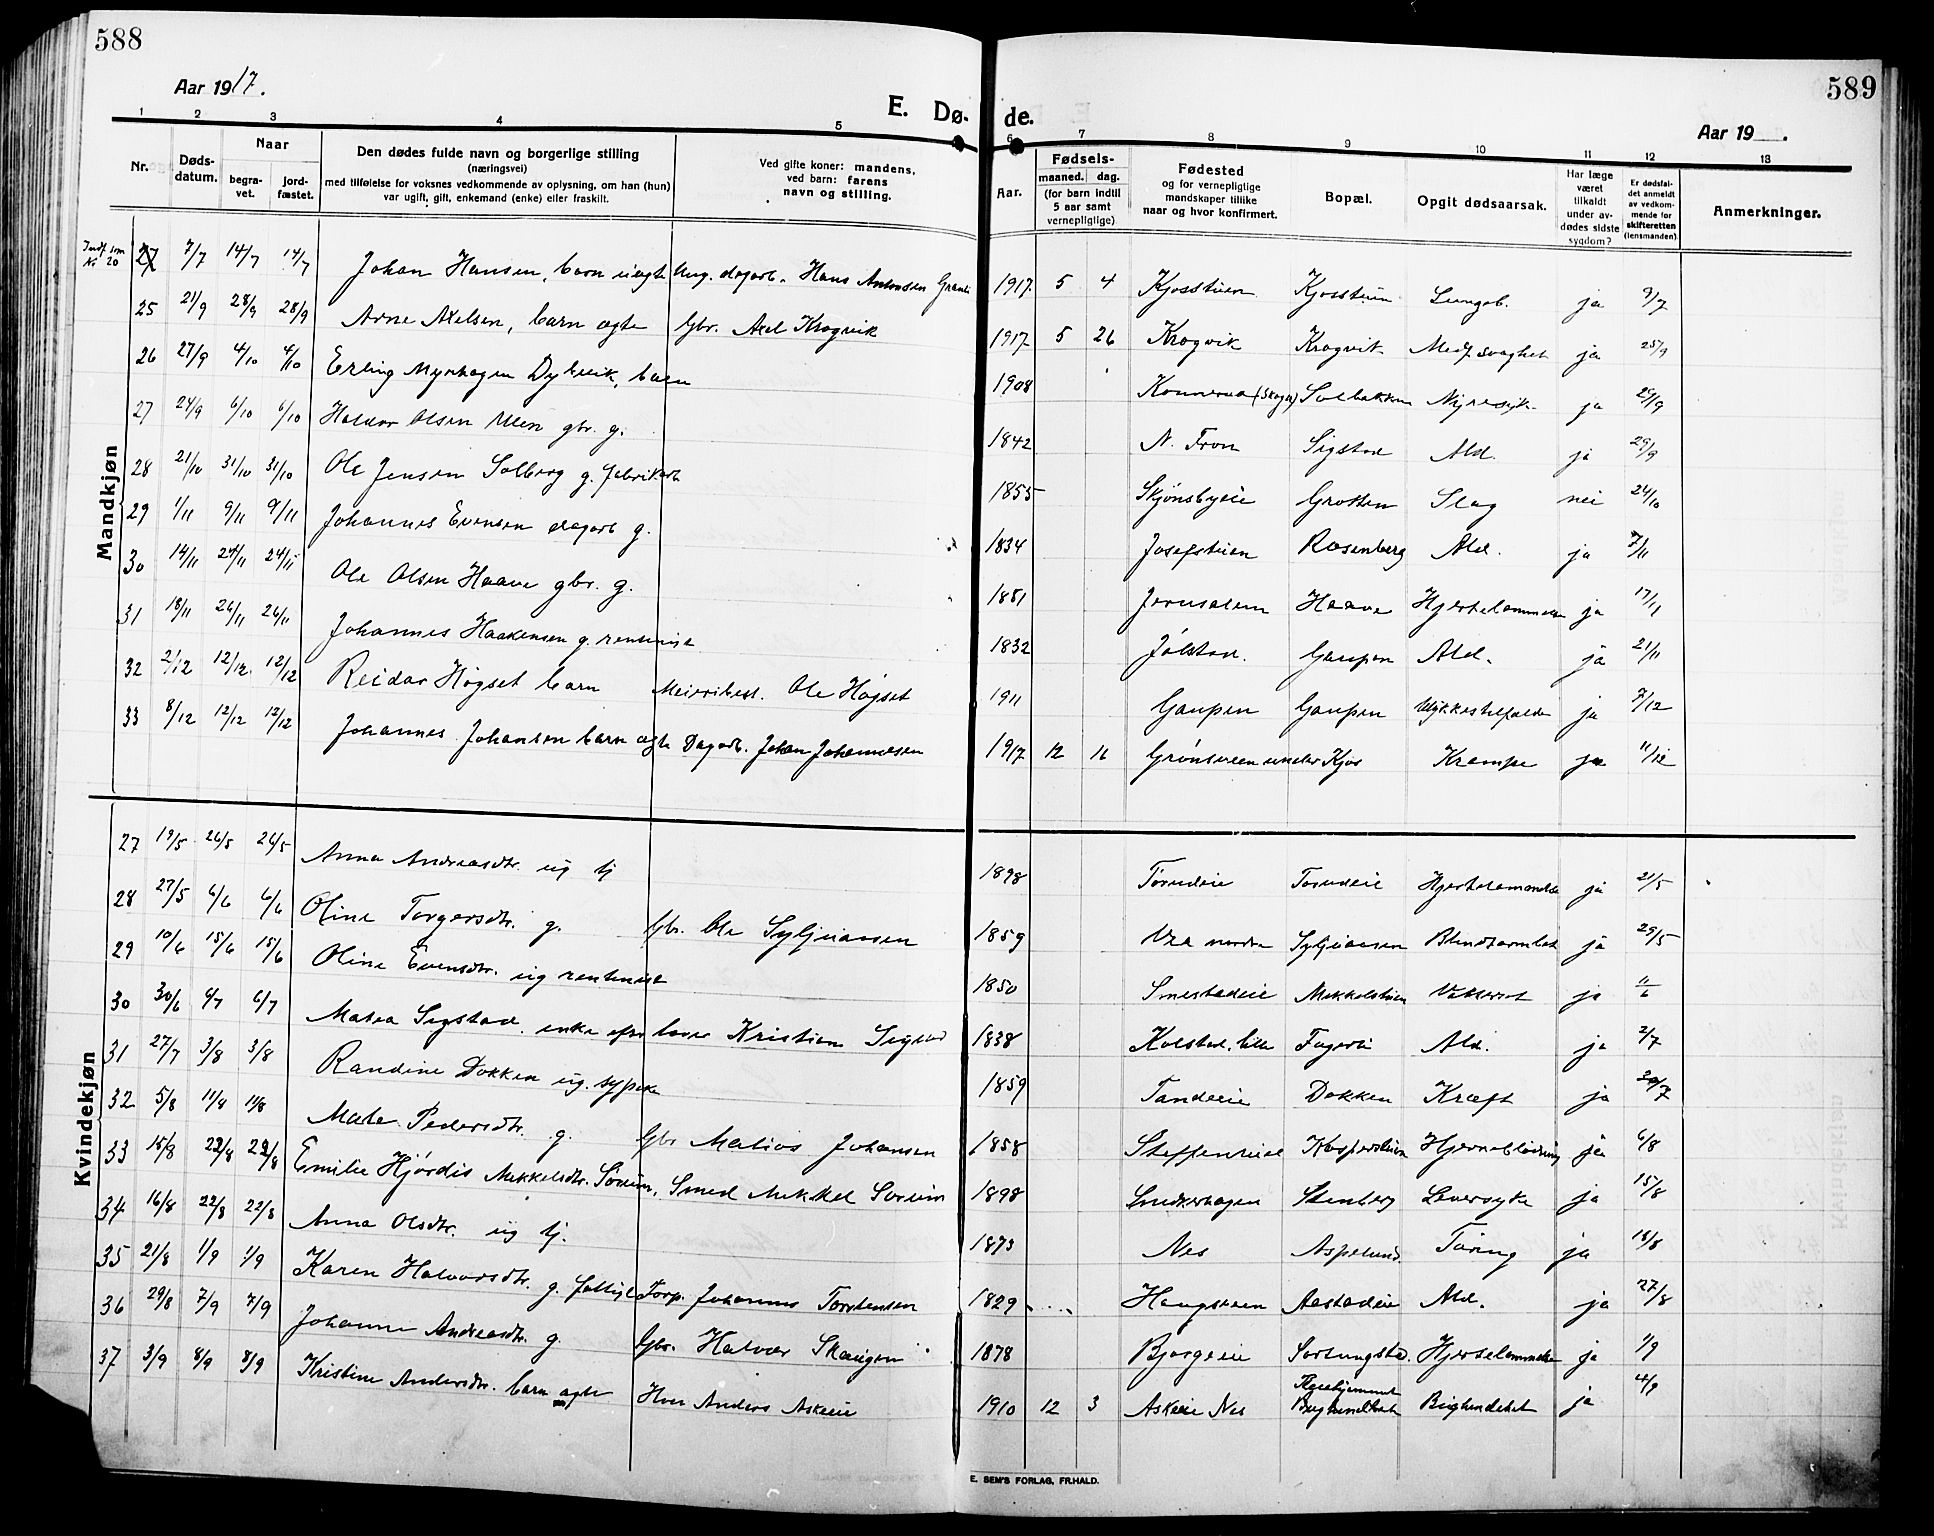 588
589
Aar 1917.
E. Dø de.
Aar 19 .
1 2 3 4 5 6 7 8 9 10 11 12 13
Nr.
Dødsdatum.
Naar
begravet.
jordfæstet.
Den dødes fulde navn og borgerlige stilling
(næringsvei)
med tilføielse for voksnes vedkommende av oplysning, om han (hun)
var ugift, gift, enkemand (enke) eller fraskilt.
Ved gifte koner: mandens,
ved barn: farens
navn og stilling.
Aar.
Fødsels-
maaned. dag.
(for barn indtil
5 aar samt
vernepligtige)
Fødested
og for vernepligtige
mandskaper tillike
naar og hvor konfirmert.
Bopæl.
Opgit dødsaarsak.
Har læge
været
tilkaldt
under av-
dødes sidste
sygdom?
Er dødsfal-
det anmeldt
av vedkom-
mende for
skifteretten
(lensmanden).
Anmerkninger.
Mandkjøn
Indf. som No 20
27 7/7 14/7 14/7 Johan Hansen, barn uægte Ung. dagarb. Hans Antonsen 1917 5 4 Kjosstuen Kjosstuen Lungeb. ja 9/7
25 21/9 28/9 28/9 Arne Axelsen, barn ægte Gbr. Axel Krogvik 1917 5 26 Krogvik Krogvik Medf. svaghet ja 25/9
26 27/9 4/10 4/10 Erling Myrhagen Dybvik, barn 1908 Konnerud (Skoger) Solbakken Nyresyk. ja 29/9
27 24/9 6/10 6/10 Haldor Olsen Ulen gbr. g. 1842 N. Fron Sigstad Ald. ja 29/9
28 21/10 31/10 31/10 Ole Jensen Solberg g. fabrikarb 1855 Skjønsbyeie Grotten Slag nei 24/10
29 1/11 9/11 9/11 Johannes Evensen dagarb g. 1834 Josefstuen Rosenberg Ald. ja 7/11
30 14/11 24/11 24/11 Ole Olsen Haave gbr. g. 1851 Jerusalem Haave Hjertelammelse ja 17/11
31 18/11 26/11 26/11 Johannes Haakensen g. rentenist 1832 Jølstad. Gaupen Ald. ja 21/11
32 2/12 12/12 12/12 Reidar Høgset barn Meieribest. Ole Høgset 1911 Gaupen Gaupen Ulykkestilfælde ja 7/12
33 8/12 12/12 12/12 Johannes Johansen barn ægte Dagarb. Johan Johannesen 1917 12 Grønsveen under Kjos Krampe ja 11/12
Kvindekjøn
27 19/5 26/5 26/5 Anna Andreasdtr. ug tj 1898 Torudeie Torudeie ja 21/5
28 27/5 6/6 6/6 Oline Torgersdtr. g. Gbr. Ole Syljuaasen 1859 nordre Syljuaasen Blindtarmbet ja 29/5
29 10/6 15/6 15/6 Oline Evensdtr. ug rentenist 1850 Smestadeie Mikkelstuen Vattersot ja 11/6
30 30/6 6/7 6/7 Matea Sigstad enke efter Kristian Sigstad 1838 Kolstad, lille Fagerli Ald. ja 2/7
31 27/7 3/8 3/8 Randine Dokken ug. sypike 1859 Tandeeie Dokken Kræft ja 30/7
32 5/8 11/8 11/8 Mate Pedersdtr. g. Gbr Matios Johansen 1858 Steffenseie Kaspersstuen Hjerneblødning ja 6/8
33 15/8 22/8 22/8 Emilie Hjørdis Mikkelsdtr. Sørum, Smed Mikkel Sørum 1898 Smedsrhagen Stenberg Leversyke ja 15/8
34 16/8 22/8 22/8 Anna Olsdtr. ug tj. 1873 Nes Aspelund. Tæring ja 18/8
35 21/8 1/9 1/9 Karen Halvorsdtr. g. fattigl Forp. Johannes Torstensen 1829 Haugsveen Aastadeie Ald. ja 27/8
36 29/8 7/9 7/9 Johanne Andreasdtr. g. Gbr. Halvor Skaugen 1878 Bjørgeeie Sørlungstad. Hjertelammelse ja 1/9
37 3/9 8/9 8/9 Kristine Andersdtr. barn ægte Hvn Anders Askeeie 1910 12 3 Askeeie Nes ja 4/9
E. SEM'S FORLAG, FR.HALD.